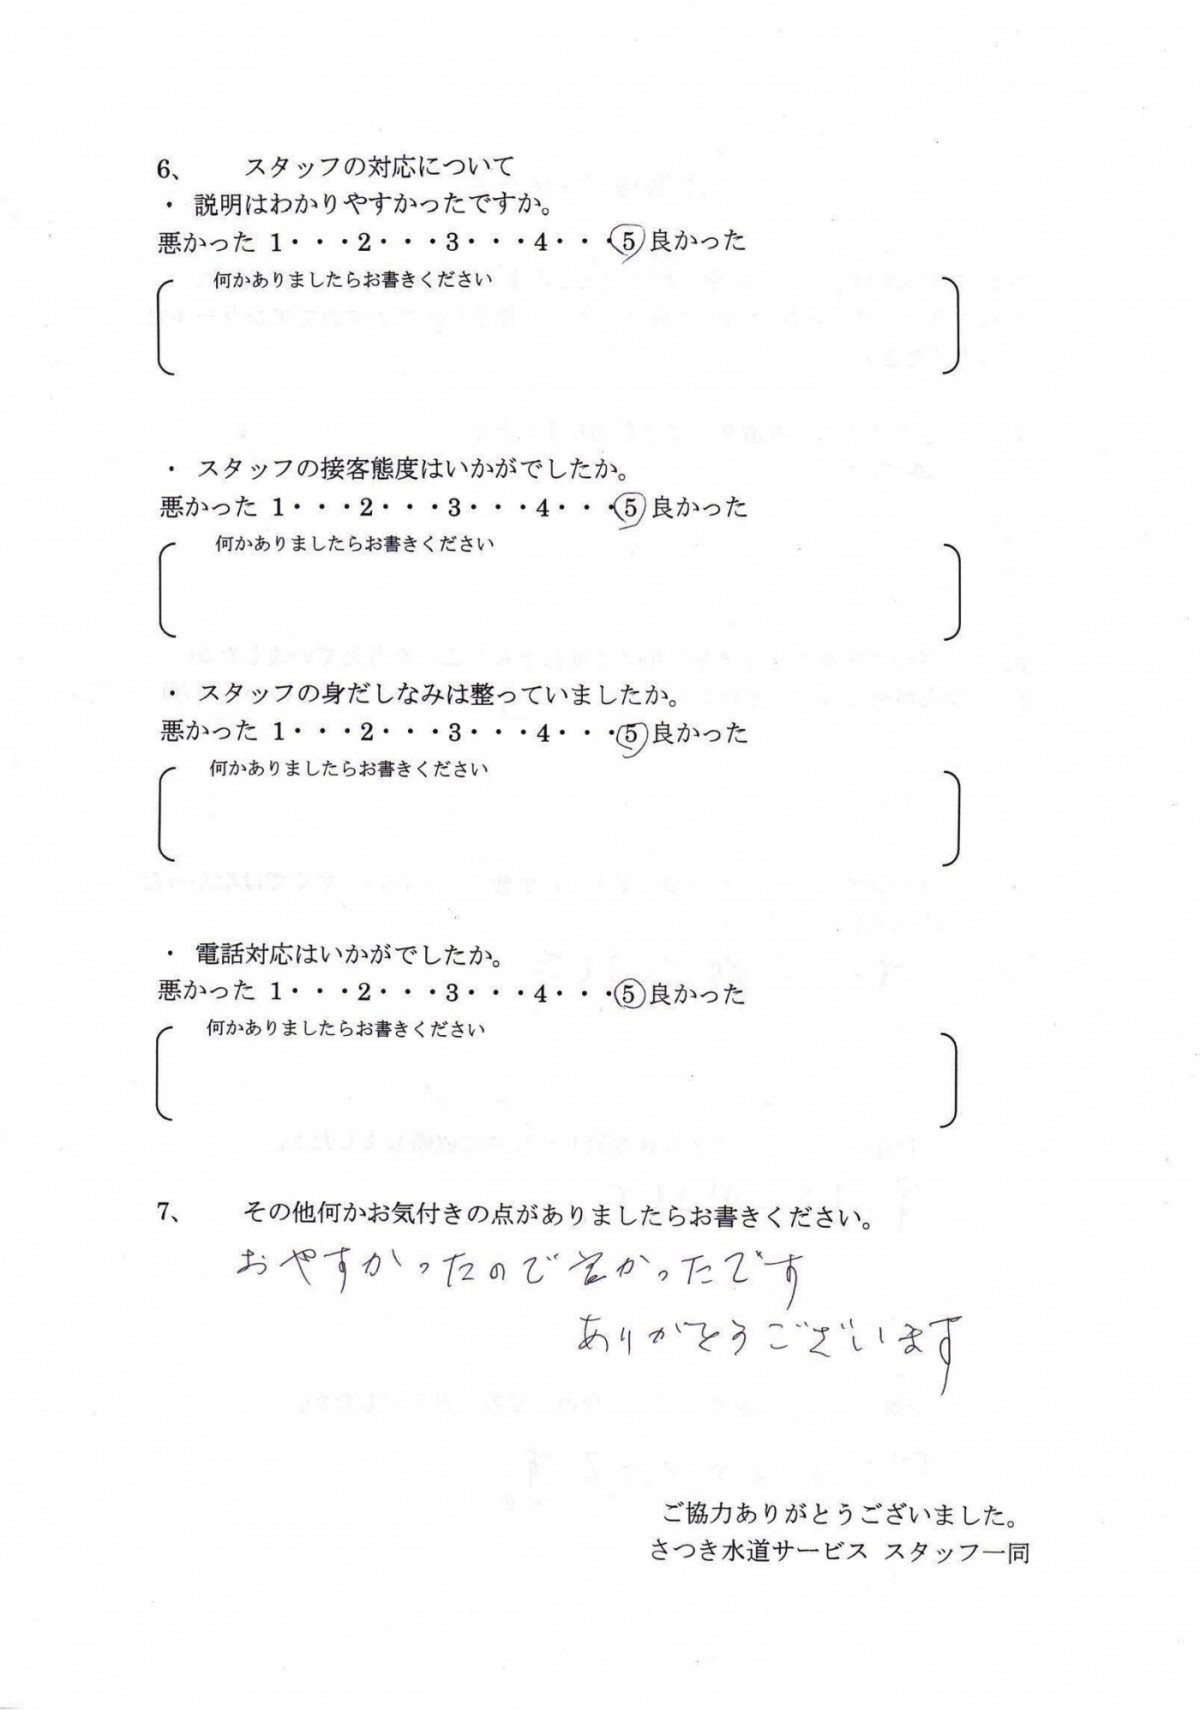 6、 スタッフの対応について
・ 説明はわかりやすかったですか。
悪かった 1・・・2・・・3・・・4・・・5 良かった
何かありましたらお書きください
・ スタッフの接客態度はいかがでしたか。
悪かった 1・・・2・・・3・・・4・・・5 良かった
何かありましたらお書きください
・ スタッフの身だしなみは整っていましたか。
悪かった 1・・・2・・・3・・・4・・・5 良かった
何かありましたらお書きください
・ 電話対応はいかがでしたか。
悪かった 1・・・2・・・3・・・4・・・5 良かった
何かありましたらお書きください
7、 その他何かお気付きの点がありましたらお書きください。
おやすかったので かったです
ありがとうございます
ご協力ありがとうございました。
さつき水道サービス スタッフ一同